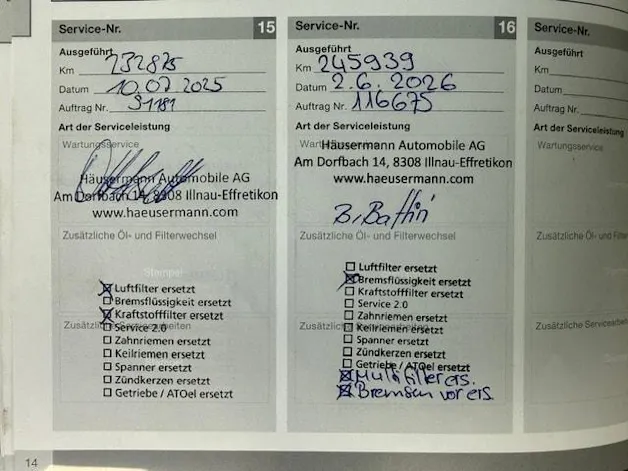 Service-Nr. 15
Ausgeführt
Km 232875
Datum 10.07 2025
Auftrag Nr. 91181
Art der Serviceleistung
Wartungsservice
Häusermann Automobile AG
Am Dorfbach 14, 8308 Illnau-Effretikon
www.haeusermann.com
Zusätzliche Öl- und Filterwechsel
Stempel
Luftfilter ersetzt
Bremsflüssigkeit ersetzt
Kraftstofffilter ersetzt
Service 2.0
Zusätzliche Servicearbeiten
Zahnriemen ersetzt
Keilriemen ersetzt
Spanner ersetzt
Zündkerzen ersetzt
Getriebe / ATOel ersetzt
14
Service-Nr. 16
Ausgeführt
Km 245939
Datum 2.6.2026
Auftrag Nr. 116675
Art der Serviceleistung
Wartungsservice
Häusermann Automobile AG
Am Dorfbach 14, 8308 Illnau-Effretikon
www.haeusermann.com
Zusätzliche Öl- und Filterwechsel
Luftfilter ersetzt
Bremsflüssigkeit ersetzt
Kraftstofffilter ersetzt
Service 2.0
Zahnriemen ersetzt
Zusätzliche Servicearbeiten
Keilriemen ersetzt
Spanner ersetzt
Zündkerzen ersetzt
Getriebe / ATOel ersetzt
Multifilter ers.
Bremsen vor ers.
Service-Nr.
Ausgeführt
Km
Datum
Auftrag Nr.
Art der Serviceleistung
Wartungsservice
Zusätzliche Öl- und
Zusätzliche Servicearbei